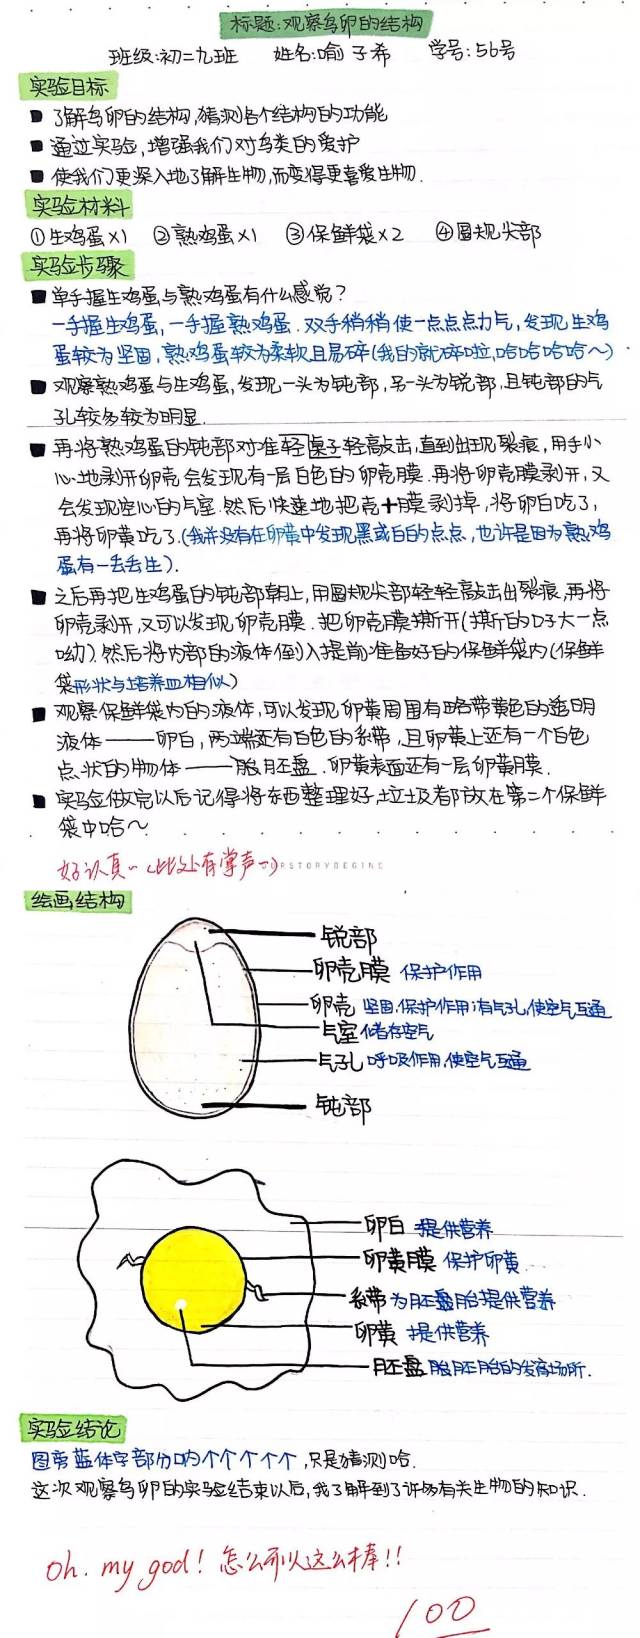 标题:观察鸟卵的结构
班级:初二九班 姓名:喻子希 学号:56号
实验目标
了解鸟卵的结构,猜测各个结构的功能
通过实验,增强我们对鸟类的爱护
使我们更深入地了解生物,而变得更喜爱生物.
实验材料
①生鸡蛋×1 ②熟鸡蛋×1 ③保鲜袋×2 ④圆规尖部
实验步骤
单手握生鸡蛋与熟鸡蛋有什么感觉?
一手握生鸡蛋,一手握熟鸡蛋.双手稍稍使一点点点力气,发现生鸡
蛋较为坚固,熟鸡蛋较为柔软且易碎(我的就碎啦,哈哈哈哈~)
观察熟鸡蛋与生鸡蛋,发现一头为钝部,另一头为锐部,且钝部的气
孔较多较为明显.
再将熟鸡蛋的钝部对准轻桌子轻敲击,直到出现裂痕,用手小
心地剥开卵壳会发现有一层白色的卵壳膜.再将卵壳膜剥开,又
会发现空心的气室.然后快速地把壳+膜剥掉,将卵白吃了,
再将卵黄吃了.(我并没有在卵黄中发现黑或白的点点,也许是因为熟鸡
蛋有一丢丢生).
之后再把生鸡蛋的钝部朝上,用圆规尖部轻轻敲击出裂痕,再将
卵壳剥开,又可以发现卵壳膜.把卵壳膜撕开(撕的口子大一点
呦).然后将内部的液体倒入提前准备好的保鲜袋内(保鲜
袋形状与培养皿相似)
观察保鲜袋内的液体,可以发现卵黄周围有略带黄色的透明
液体——卵白,两端还有白色的系带,且卵黄上还有一个白色
点状的物体——胚盘.卵黄表面还有一层卵黄膜.
实验做完以后记得将东西整理好,垃圾都放在第二个保鲜
袋中哈~
好认真~(此处有掌声~)
OURSTORYBEGINS
绘画结构
锐部
卵壳膜 保护作用
卵壳 坚固,保护作用;有气孔,使空气互通
气室 储存空气
气孔 呼吸作用,使空气互通
钝部
卵白 提供营养
卵黄膜 保护卵黄
系带 为胚盘胎提供营养
卵黄 提供营养
胚盘 胚胎的发育场所.
实验结论
图旁蓝体字部分呐个个个个个,只是猜测哈.
这次观察鸟卵的实验结束以后,我了解到了许多有关生物的知识.
Oh. my god! 怎么可以这么棒!!
100